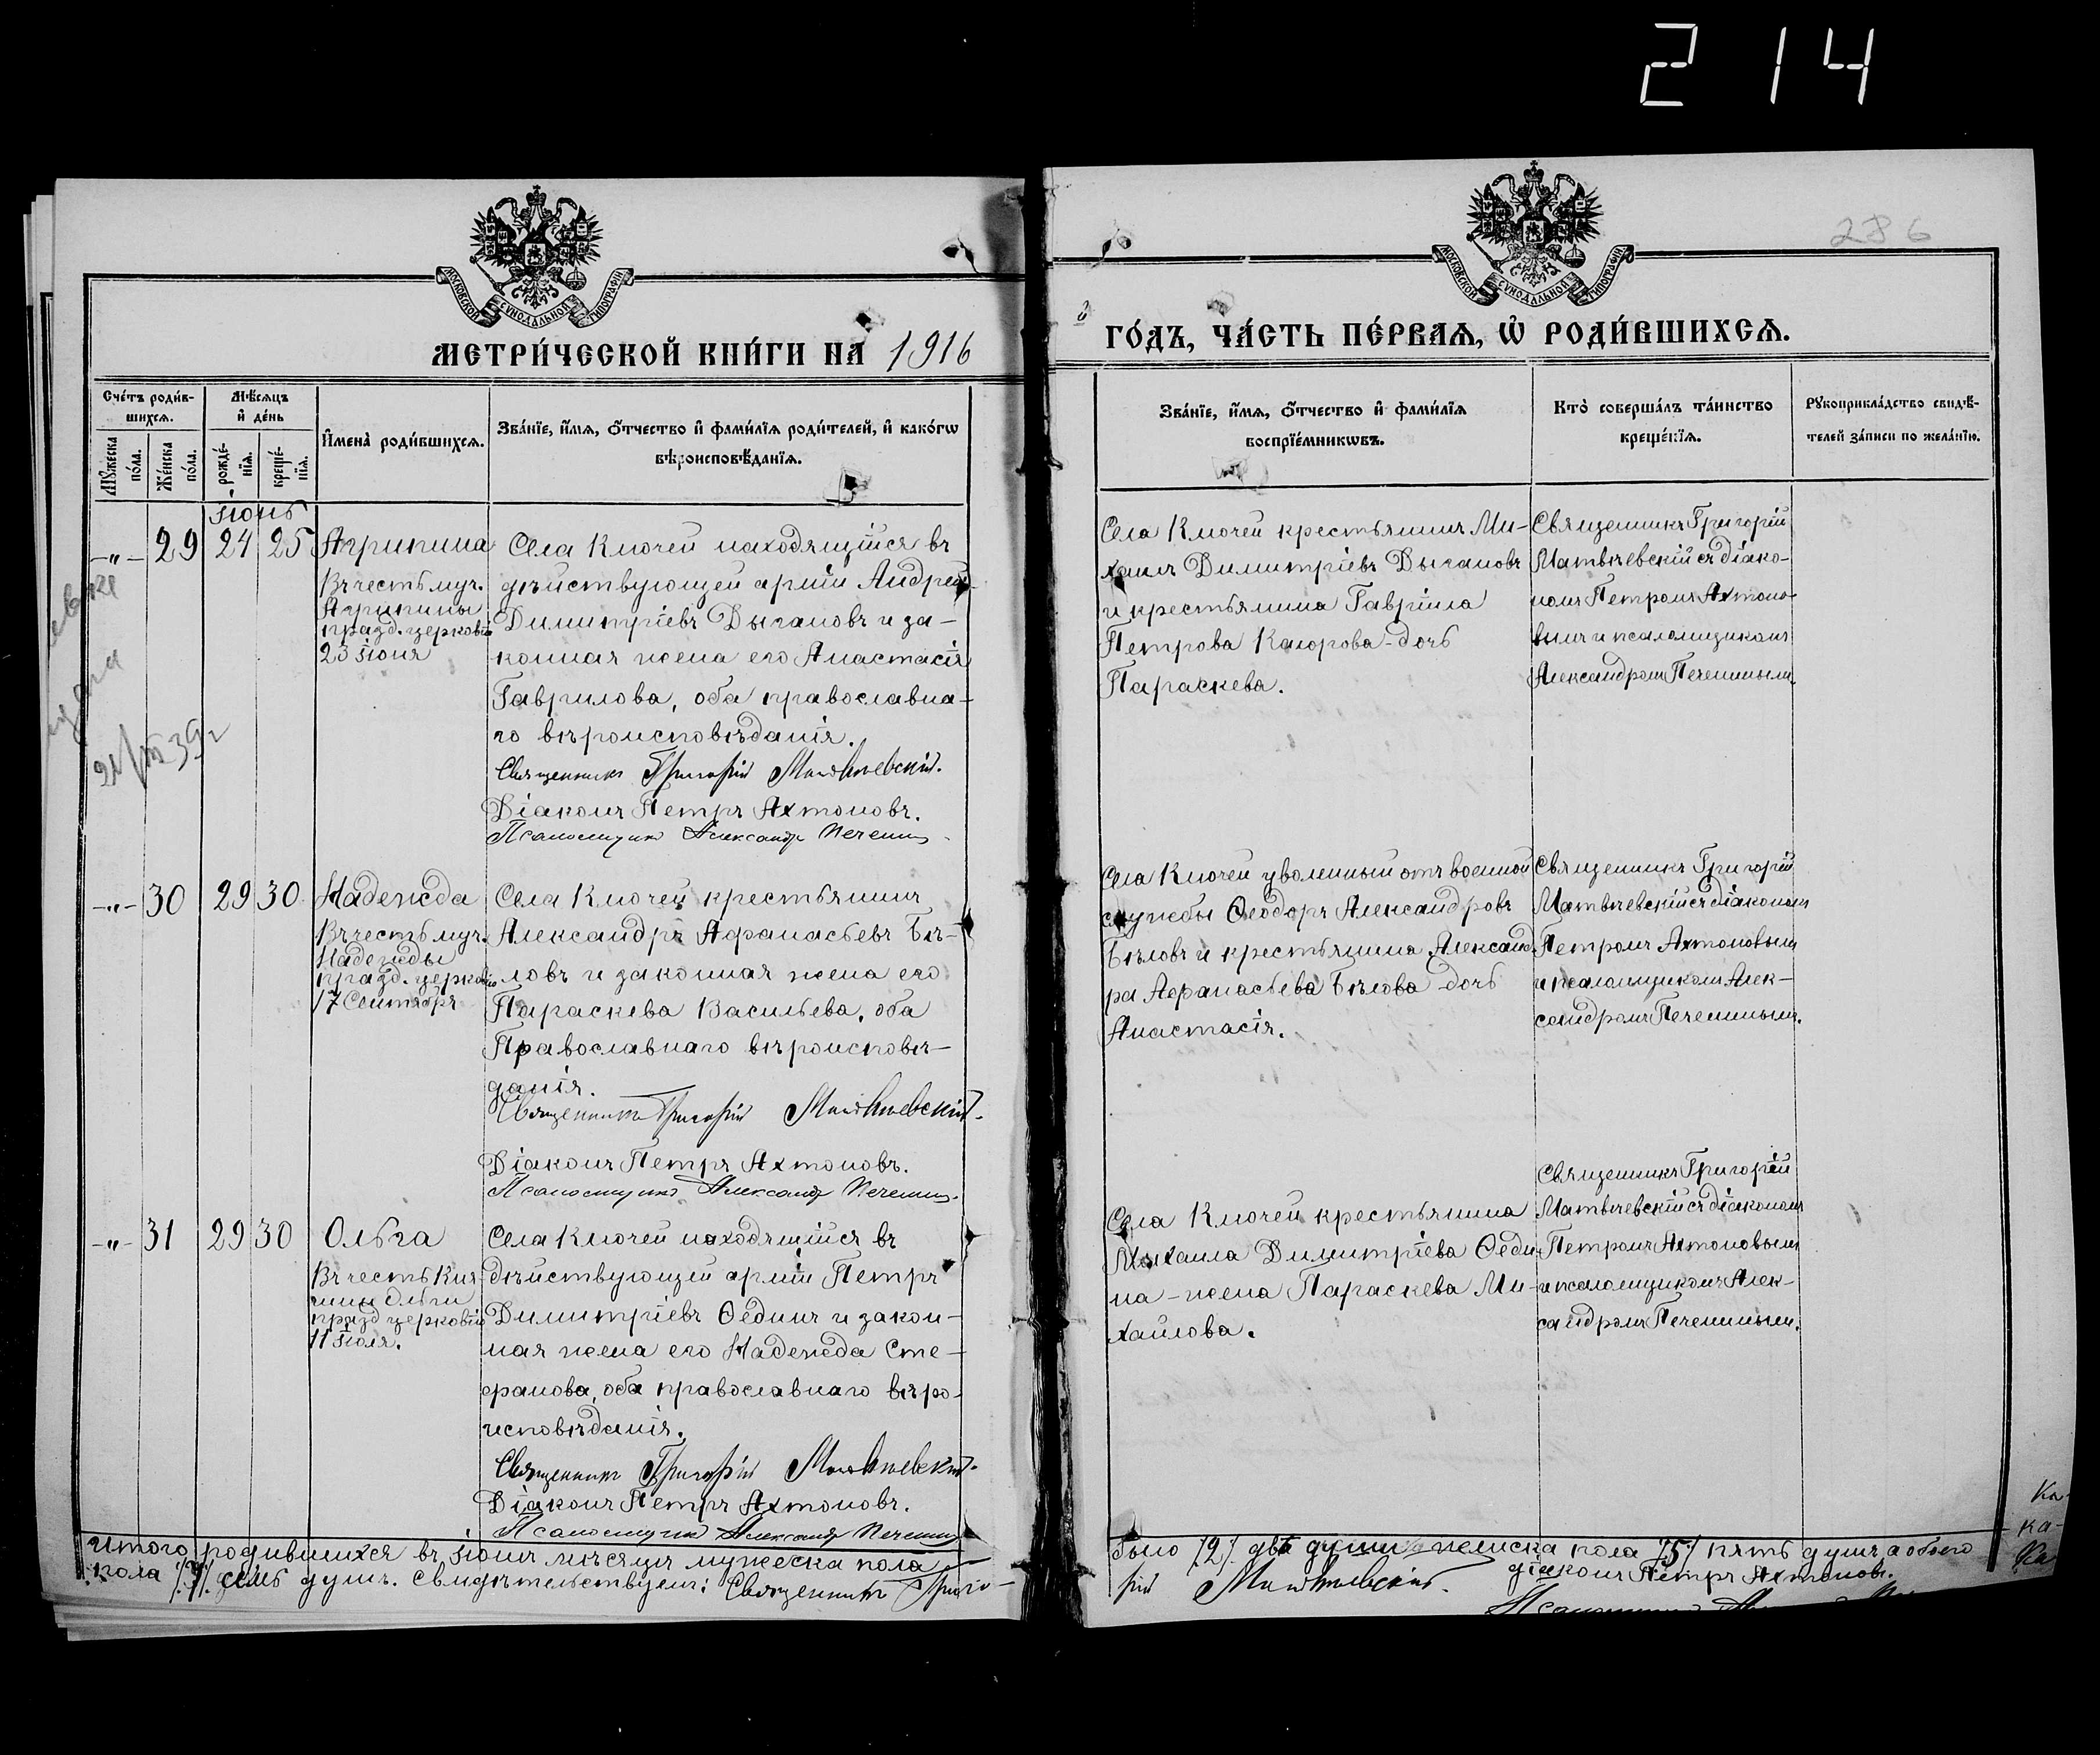 214
286
МОСКОВСКОЙ СѴНОДАЛЬНОЙ ТИПОГРАФІИ
МОСКОВСКОЙ СѴНОДАЛЬНОЙ ТИПОГРАФІИ
МЕТРИ́ЧЕСКОЙ КНИ́ГИ НА 1916
ГО́ДЪ, ЧА́СТЬ ПЕ́РВАѦ, Ѡ҆ РОДИ́ВШИХСѦ.
Сче́тъ роди́в-
шихсѧ.
Мѣ́сѧцъ
и҆ де́нь
Мꙋ́жеска
по́ла.
Же́нска
по́ла.
рожде́-
нїѧ.
креще́-
нїѧ.
И҆мена̀ роди́вшихсѧ.
Зва́нїе, и҆́мѧ, ѻ҆́тчество и҆ фами́лїѧ роди́телей, и҆ како́гѡ
вѣроисповѣ́данїѧ.
Зва́нїе, и҆́мѧ, ѻ҆́тчество и҆ фами́лїѧ
воспрїе́мникѡвъ.
Кто̀ соверша́лъ та́инство
креще́нїѧ.
Рꙋкоприкла́дство свидѣ́-
телей за́писи по жела́нїю.
Іюнь
-"- 29 24 25 Агрипина
Въ честь муч.
Агрипины
празд. церковію
23 Іюня
Села Ключей находящійся въ
дѣйствующей арміи Андрей
Димитріевъ Дыгановъ и за-
конная жена его Анастасія
Гаврилова, оба православна-
го вѣроисповѣданія.
Священникъ Григорій Матвѣевскій.
Діаконъ Петръ Ахтоновъ.
Псаломщикъ Александръ Печенинъ.
Села Ключей крестьянинъ Ми-
хаилъ Димитріевъ Дыгановъ
и крестьянина Гавріила
Петрова Каюрова-дочь
Параскева.
Священникъ Григорій
Матвѣевскій съ діако-
номъ Петромъ Ахтоно-
вымъ и псаломщикомъ
Александромъ Печенинымъ.
21/III 39 г
-"- 30 29 30 Надежда
Въ честь муч.
Надежды
празд. церковію
17 Сентября
Села Ключей крестьянинъ
Александръ Афанасьевъ Бѣ-
ловъ и законная жена его
Параскева Васильева, оба
Православнаго вѣроисповѣ-
данія.
Священникъ Григорій Матвѣевскій.
Діаконъ Петръ Ахтоновъ.
Псаломщикъ Александръ Печенинъ.
Села Ключей уволенный отъ военной
службы Ѳеодоръ Александровъ
Бѣловъ и крестьянина Александ-
ра Афанасьева Бѣлова дочь
Анастасія.
Священникъ Григорій
Матвѣевскій съ діакономъ
Петромъ Ахтоновымъ
и псаломщикомъ Алек-
сандромъ Печенинымъ.
-"- 31 29 30 Ольга
Въ честь Кня-
гини Ольги
празд церковію
11 Іюля.
Села Ключей находящійся въ
дѣйствующей арміи Петръ
Димитріевъ Ѳединъ и закон-
ная жена его Надежда Сте-
фанова, оба православнаго вѣро-
исповѣданія.
Священникъ Григорій Матвѣевскій.
Діаконъ Петръ Ахтоновъ.
Псаломщикъ Александръ Печенинъ
Села Ключей крестьянина
Михаила Димитріева Ѳеди-
на-жена Параскева Ми-
хайлова.
Священникъ Григорій
Матвѣевскій съ діакономъ
Петромъ Ахтоновымъ
и псаломщикомъ Алек-
сандромъ Печенинымъ.
Итого родившихся въ Іюнѣ мѣсяцѣ мужеска пола было /2/ двѣ души женска пола /5/ пять душъ а обоего
пола /7/ семь душъ. Свидѣтельствуемъ: Священникъ Григо-рій Матвѣевскій. діаконъ Петръ Ахтоновъ.